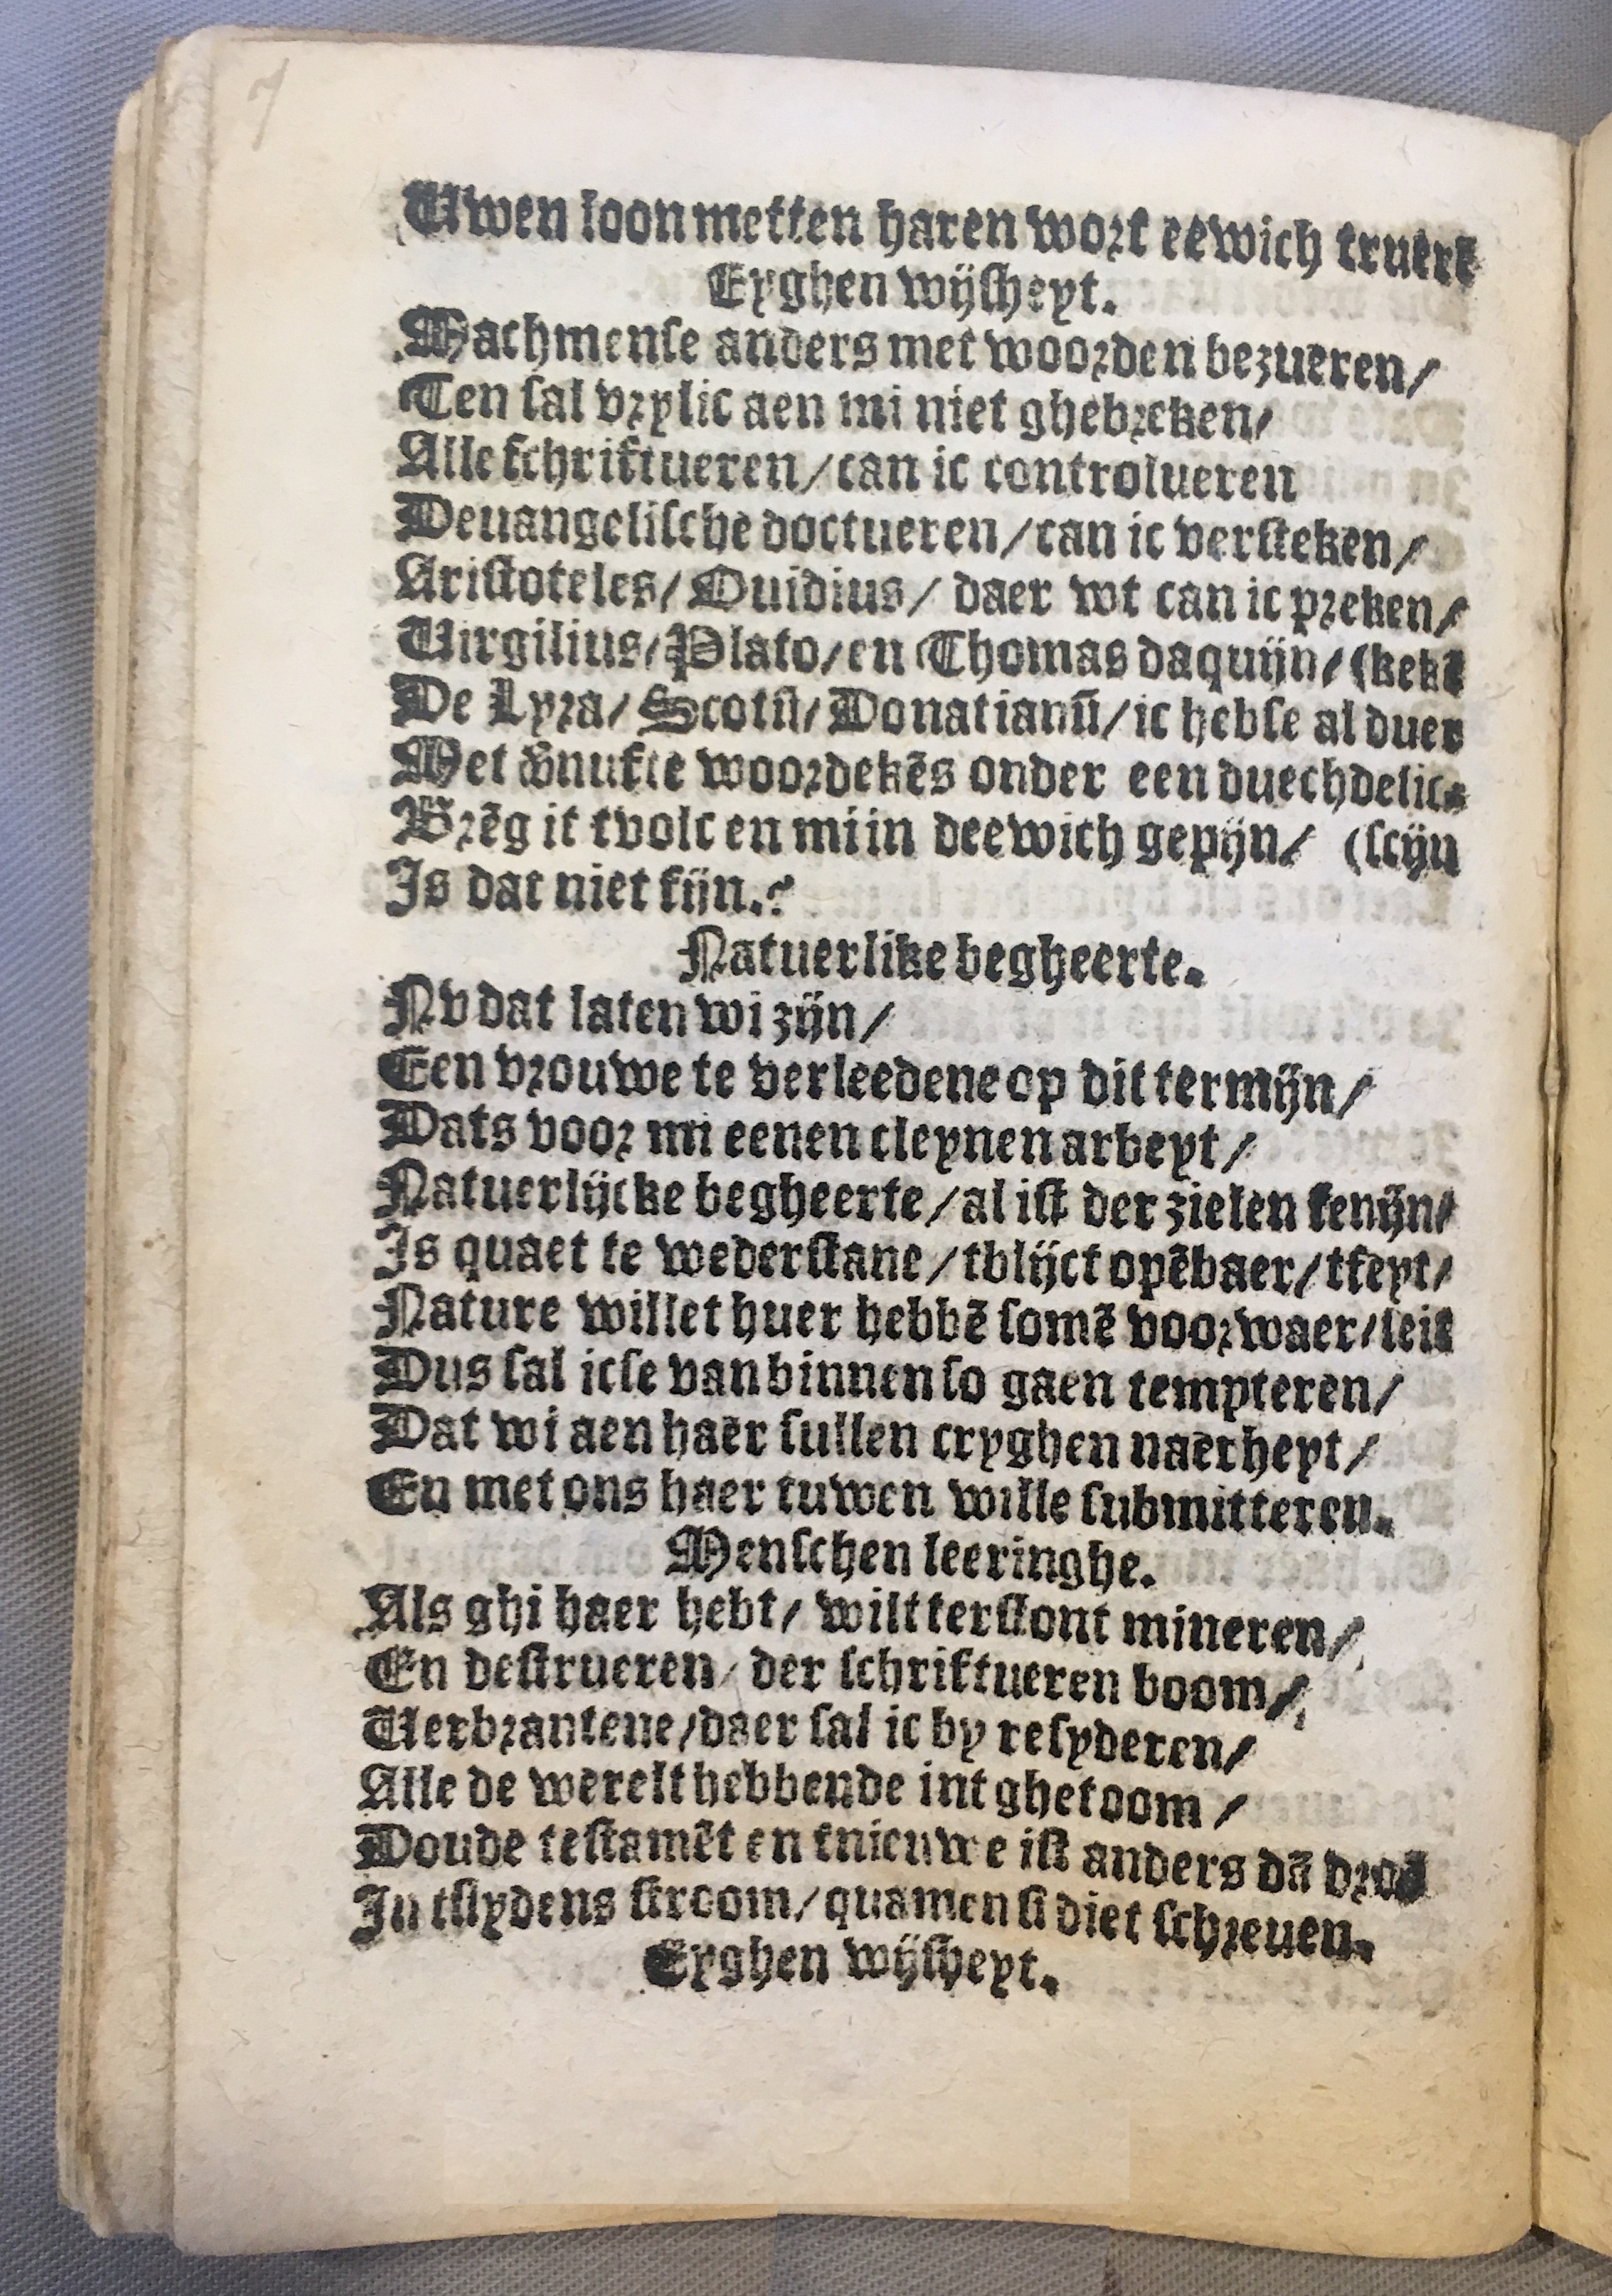 7
Uwen loon metten haren wort eewich truerē
Eyghen wijsheyt.
Machmense anders met woorden bezueren/
Ten sal vrylic aen mi niet ghebreken/
Alle schriftueren/can ic controlueren
Deuangelische doctueren/can ic versteken/
Aristoteles/Ouidius/ daer wt can ic preken/
Uirgilius/Plato/en Thomas daquijn/(kekē
De Lyra/Scotū/Donatianū/ic hebse al duer
Met vnufte woordekēs onder een duechdelic
Brēg it tvolc en mi in deewich gepijn/ (scijn
Is dat niet fijn.?
Natuerlike begheerte.
Nv dat laten wi zijn/
Een vrouwe te verleedene op dit termijn/
Dats voor mi eenen cleynen arbeyt/
Natuerlijcke begheerte/al ist der zielen fenijn/
Is quaet te wederstane/tblijct opēbaer/tfeyt/
Nature willet huer hebbē somē voorwaer/seit
Dus sal icse van binnen so gaen tempteren/
Dat wi aen haer sullen cryghen naerheyt/
En met ons haer tuwen wille submitteren.
Menschen leeringhe.
Als ghi haer hebt/ wilt terstont mineren/
En destrueren/ der schriftueren boom/
Uerbrantene/daer sal ic by resyderen/
Alle de werelt hebbende int ghetoom/
Doude testamēt en tnieuwe ist anders dā droō
In tslydens stroom/quamen si diet schreuen.
Eyghen wijsheyt.